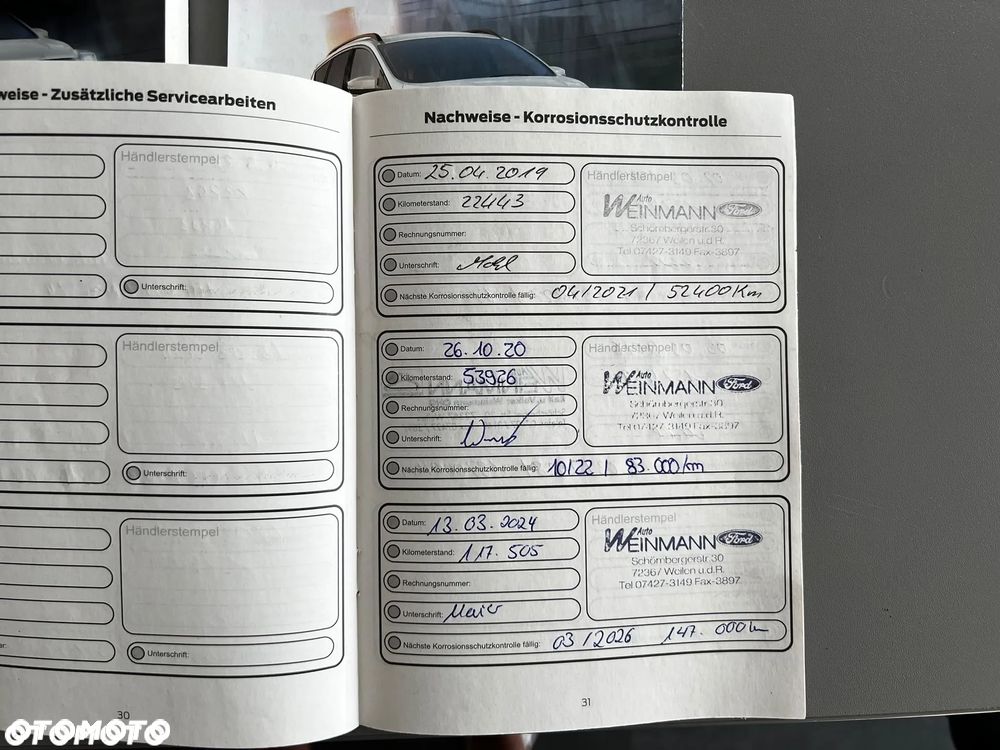 weise - Zusätzliche Servicearbeiten
Händlerstempel
Unterschrift:
Händlerstempel
Unterschrift:
Händlerstempel
Unterschrift:
30
Nachweise - Korrosionsschutzkontrolle
Datum: 25.04.2019
Kilometerstand: 22443
Rechnungsnummer:
Unterschrift:
Händlerstempel
Auto
WEINMANN Ford
Schömbergerstr.30
72367 Weilen u.d.R.
Tel.07427-3149 Fax-3897
Nächste Korrosionsschutzkontrolle fällig: 04/2021 / 52400 Km
Datum: 26.10.20
Kilometerstand: 53926
Rechnungsnummer:
Unterschrift:
Händlerstempel
Auto
WEINMANN Ford
Schömbergerstr.30
72367 Weilen u.d.R.
Tel.07427-3149 Fax-3897
Nächste Korrosionsschutzkontrolle fällig: 10/22 / 83.000 km
Datum: 13.03.2024
Kilometerstand: 117.505
Rechnungsnummer:
Unterschrift: Maier
Händlerstempel
Auto
WEINMANN Ford
Schömbergerstr.30
72367 Weilen u.d.R.
Tel.07427-3149 Fax-3897
Nächste Korrosionsschutzkontrolle fällig: 03/2026 147.000 km
31
OTOMOTO